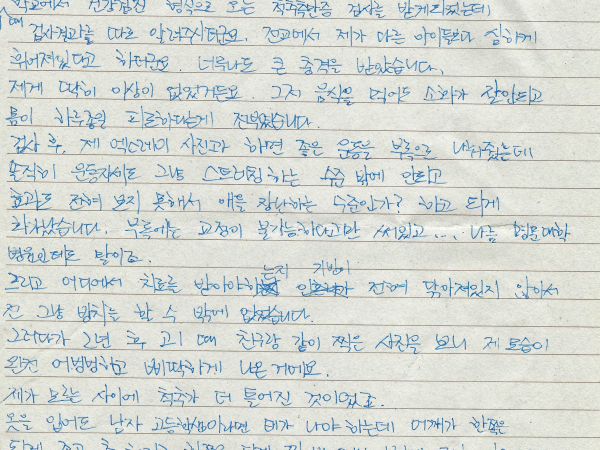 학교에서 건강검진 형식으로 모든 척추측만증 검사를 받게되었는데
때 검사결과를 따로 알려주시더군요. 전교에서 제가 다른 아이들보다 심하게
휘어져있다고 하더군요. 너무나도 큰 충격을 받았습니다.
제게 딱히 이상이 없었거든요. 그저 음식을 먹어도 소화가 잘안되고
몸이 하루종일 피로하다는게 전부였습니다.
검사 후, 제 엑스레이 사진과 하면 좋은 운동을 부록으로 내줬는데
솔직히 운동자체도 그냥 스트레칭 하는 수준 밖에 안되고
효과도 전혀 보지 못해서 애들 장난하는 수준인가? 하고 되게
화났습니다. 부록에는 교정이 불가능하다고만 써있고.... 나름 명문대학
병원인데도 말이죠.
그리고 어디에서 치료를 받아야하는지 기반이 전혀 닦아져있지 않아서
전 그냥 방치를 할 수 밖에 없었습니다.
그러다가 2년 후 고1 때 친구랑 같이 찍은 사진을 보니 제 모습이
완전 어벙벙하고 삐딱하게 나온거예요.
제가 모르는 사이에 척추가 더 틀어진 것이었죠.
옷을 입어도 남자 고등학생이라면 태가 나야 하는데 어깨가 한쪽은